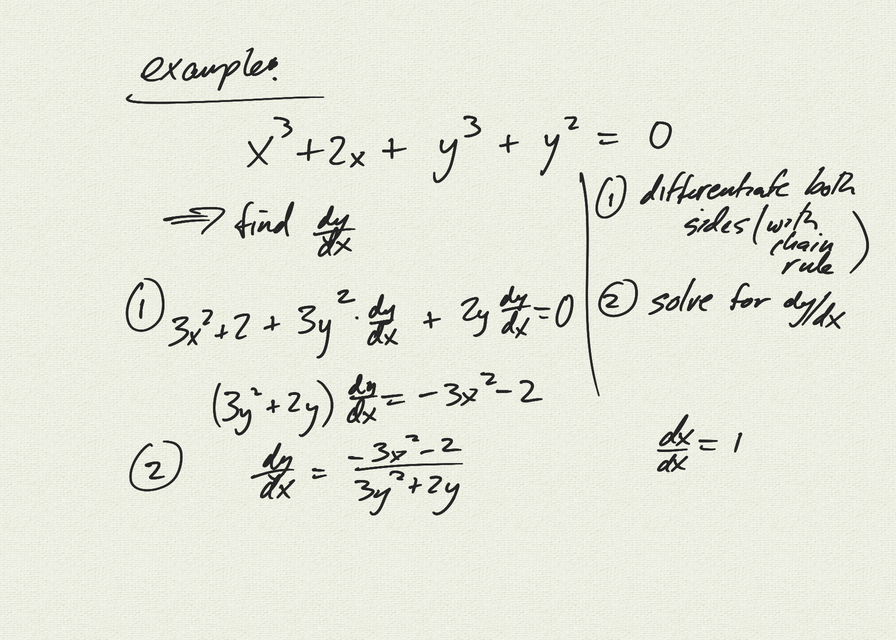 example:
x³+2x + y³ + y² = 0
⇒ find dy/dx
① 3x²+2 + 3y² · dy/dx + 2y dy/dx = 0
(3y²+2y) dy/dx = -3x²-2
② dy/dx = (-3x²-2)/(3y²+2y)
① differentiate both
sides (with
chain
rule)
② solve for dy/dx
dx/dx = 1